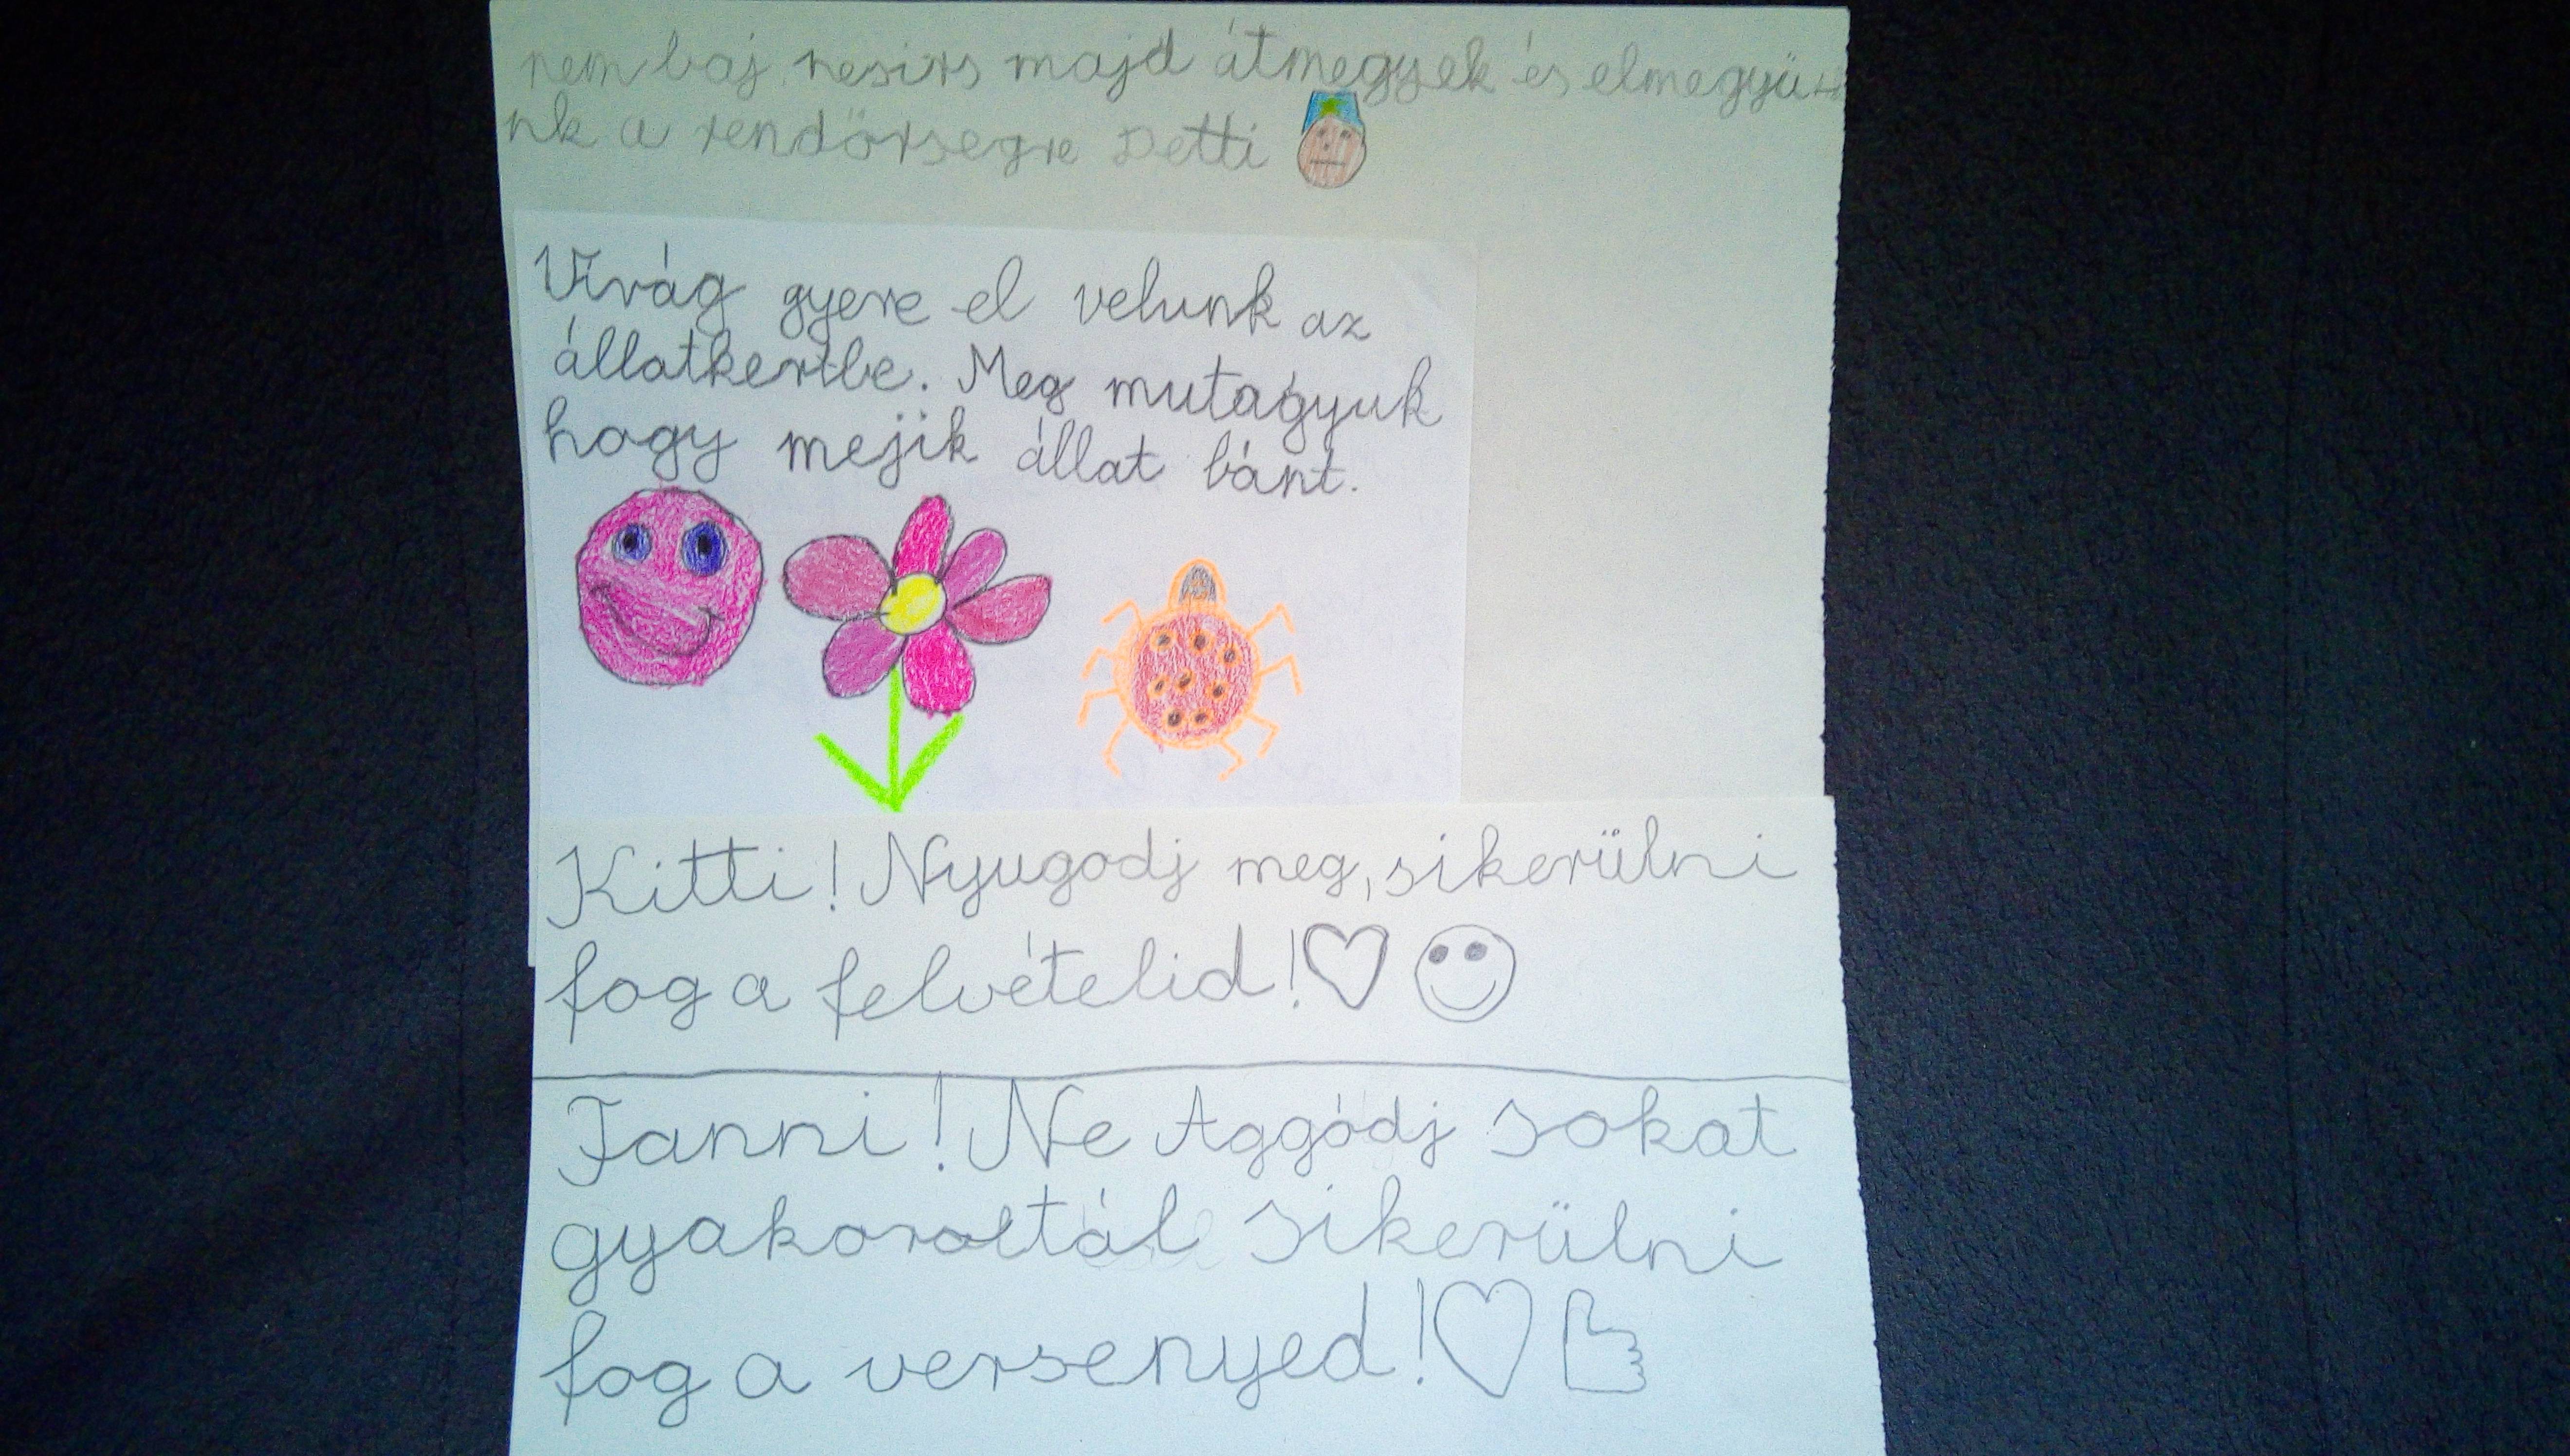 nem baj nesirs majd átmegyek és elmegyü
nk a rendörsegre Detti
Virág gyere el velunk az
állatkertbe. Meg mutagyuk
hogy mejik állat bánt.
Kitti! Nyugodj meg, sikerülni
fog a felvételid!
Fanni! Ne Aggódj sokat
gyakoroltál sikerülni
fog a versenyed!